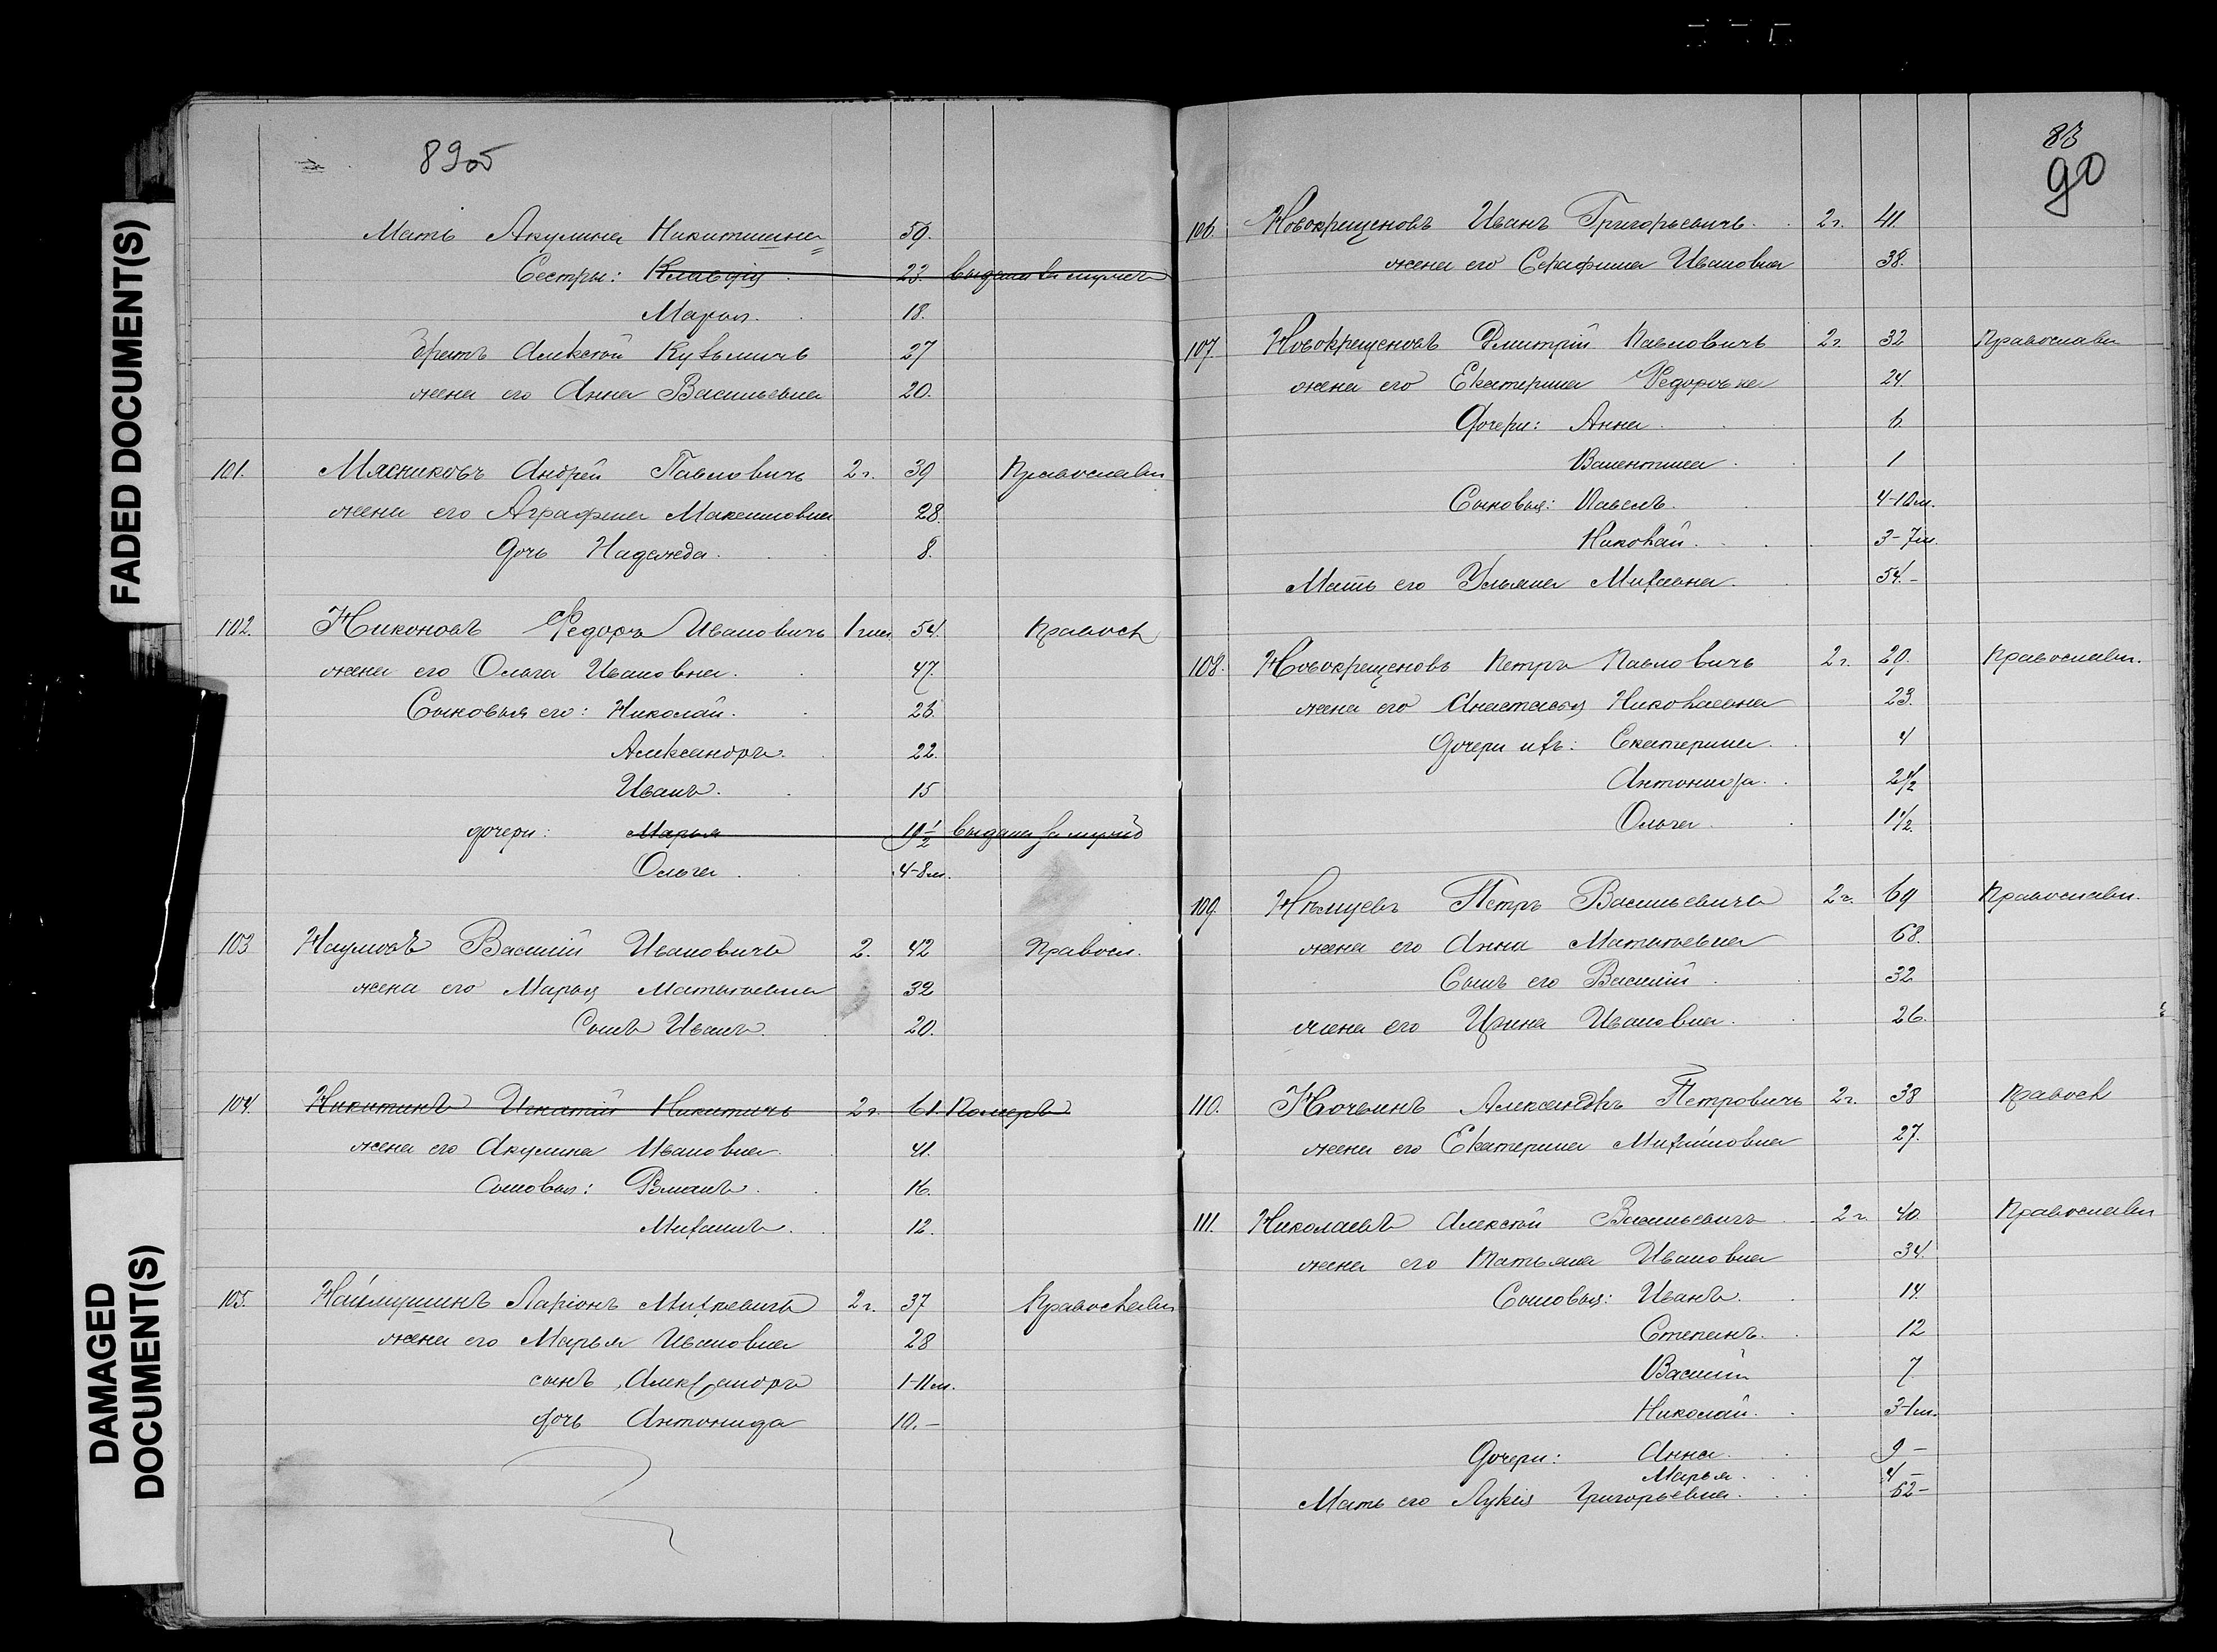 FADED DOCUMENT(S)
DAMAGED DOCUMENT(S)
Мать Акулина Никитишна 59.
Сестры: Клавдія 23. выдана въ замуж
Марья. 18.
Братъ Алексѣй Кузьмичъ 27
жена его Анна Васильевна 20.
101. Мясниковъ Андрей Павловичъ 2 г. 39 Православн
жена его Аграфена Максимовна 28.
дочь Надежда. 8.
102. Никоновъ Ѳедоръ Ивановичъ 1 гил 54. Правосл
жена его Ольга Ивановна. 47.
Сыновья его: Николай. 23.
Александръ. 22.
Иванъ. 15
дочери: Марья 19 1/2 выдана замужъ
Ольга 4-8м.
103 Наумовъ Василій Ивановичъ 2. 42 Правосл.
жена его Марья Матвѣевна 32
Сынъ Иванъ. 20.
104. Никитинъ Игнатій Никитичъ 2 г. 61. Померъ
жена его Акулина Ивановна. 41.
Сыновья: Романъ. 16.
Михаилъ. 12.
105. Наймушинъ Ларіонъ Михѣевичъ 2 г. 37 Православн
жена его Марья Ивановна 28
сынъ Александръ 1-11м.
дочь Антонида 10.-
83
90
106. Новокрещеновъ Иванъ Григорьевичъ. 2 г. 41.
жена его Серафима Ивановна 38.
107. Новокрещеновъ Дмитрій Павловичъ 2 г. 32 Православн
жена его Екатерина Ѳедоровна 24.
Дочери: Анна. 6.
Валентина. 1
Сыновья: Павелъ. 4-10м.
Николай. 3-7м.
Мать его Ульяна Михѣевна. 54.-
108. Новокрещеновъ Петръ Павловичъ 2 г. 29. Православн.
жена его Анастасья Николаевна 23.
Дочери ихъ: Екатерина. 4
Антонида. 2 1/2
Ольга. 1 1/2.
109. Нѣмцевъ Петръ Васильевичъ 2 г. 69 Православн.
жена его Анна Матвѣевна 68.
Сынъ его Василій. 32
жена его Ирина Ивановна. 26.
110. Ночвинъ Александръ Петровичъ 2 г. 38 Правосл
жена его Екатерина Михайловна 27.
111. Николаевъ Алексѣй Васильевичъ 2 г. 40. Православн
жена его Татьяна Ивановна 34.
Сыновья: Иванъ. 14.
Степанъ. 12
Василій 7.
Николай. 3-1м.
Дочери: Анна. 9-
Марья. 4-
Мать его Лукія Григорьевна. 62-